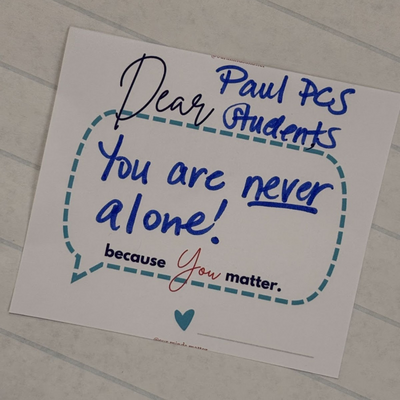 Dear Paul PCS
Students
You are never
alone!
because You matter.